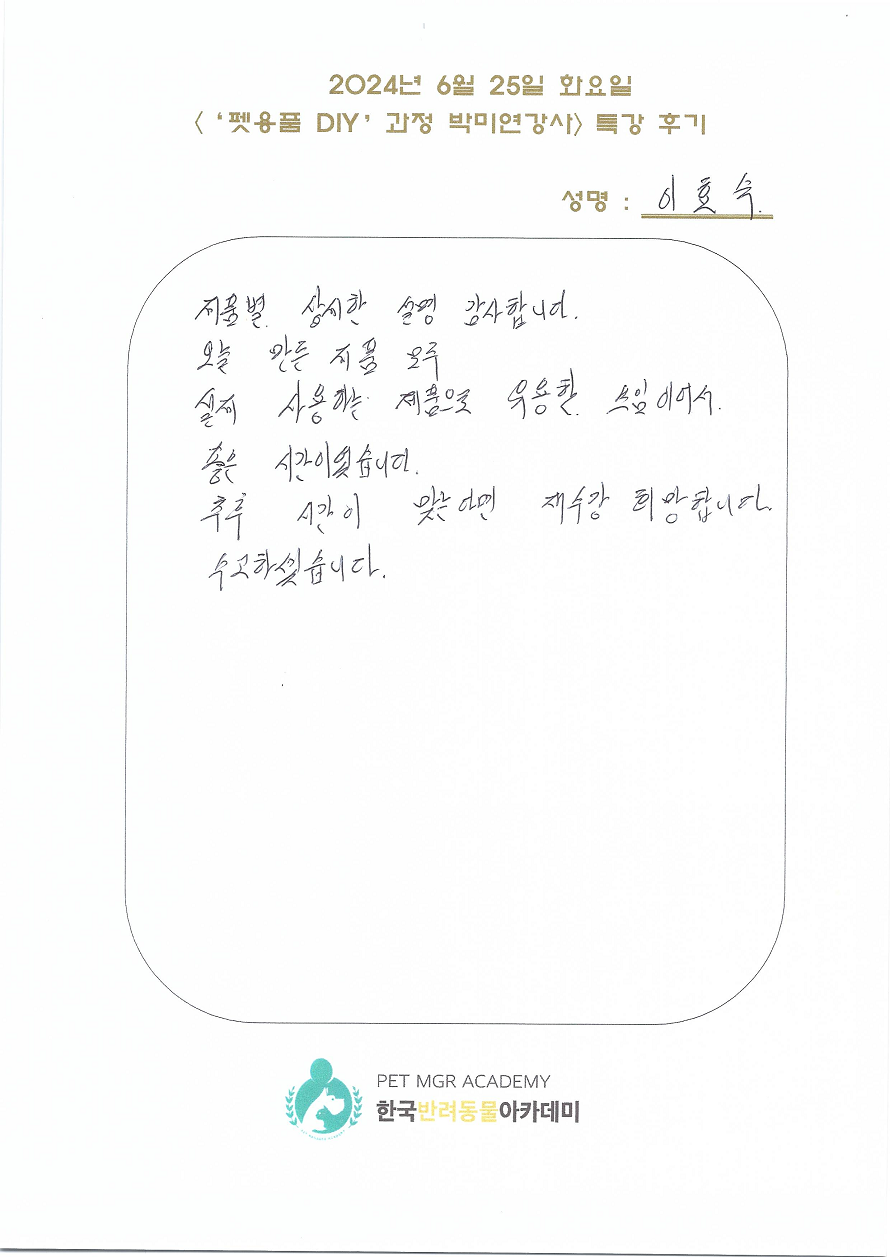 2024년 6월 25일 화요일
< '펫용품 DIY' 과정 박미연강사> 특강 후기
성명 : 이효숙.
제품별 상세한 설명 감사합니다.
오늘 만든 제품 모두
실제 사용하는 제품으로 유용한 쓰임이어서.
좋은 시간이였습니다.
추후 시간이 맞는다면 재수강 희망합니다.
수고하셨습니다.
PET MGR ACADEMY
한국반려동물아카데미